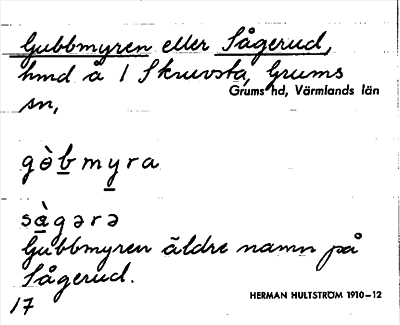 Gubbmyren eller Sågerud,
hmd å 1 Skruvsta, Grums
Grums hd, Värmlands län
sn,
gòbmyra
sàgərə
Gubbmyren äldre namn på
Sågerud.
17
HERMAN HULTSTRÖM 1910–12